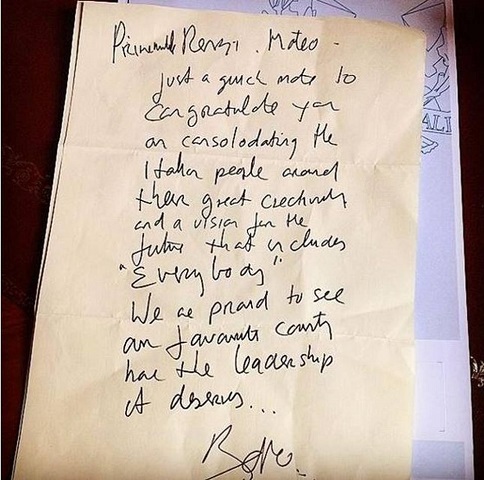 Renzi . Mateo -
Just a quick note to
congratulate you
on consolodating the
Italian people around
their great creativity
and a vision for the
future that includes
"Everybody"
We are proud to see
our favourite country
have the leadership
it deserves...
Bono.
ALI